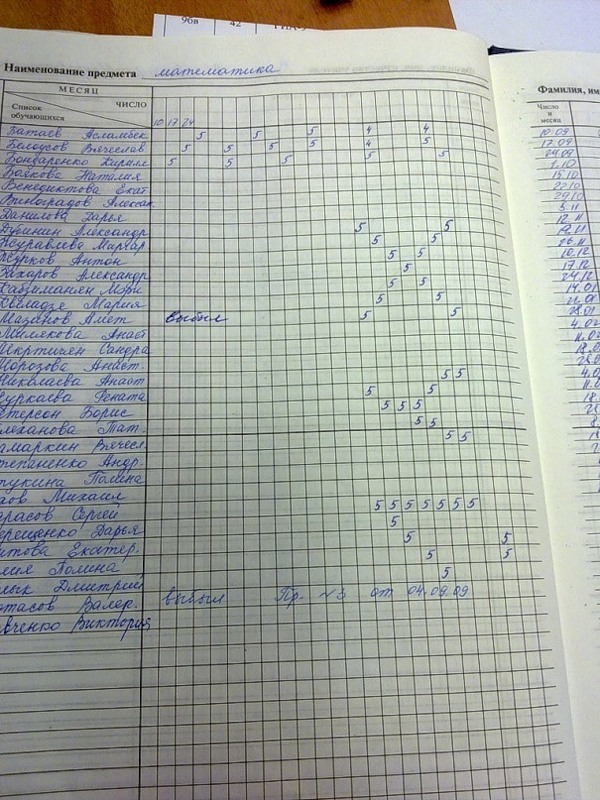 96в 42
Наименование предмета математика
МЕСЯЦ
ЧИСЛО
Список обучающихся
10 17 24
Батаев Асламбек 5 5 5 4 4
Белоусов Вячеслав 5 5 5 5 4 5
Бондаренко Кирилл 5 5 5 5 5
Боякова Наталия
Венедиктова Екат
Виноградов Алексан
Данилова Дарья
Дубинин Александр 5 5
Журавлева Маргар 5 5
Журков Антон 5 5
Захаров Александр 5
Кабзиманян Мэри 5 5
Квиладзе Мария 5 5
Мазанов Амет выбыл 5 5
Милякова Анаст
Мкртичян Сандра
Морозова Анаст.
Николаева Анаст 5 5
Нуркаева Рената 5 5
Петерсон Борис 5 5 5
Плеханова Тат. 5 5
Самаркин Вячесл. 5 5
Степаненко Андр.
Полина
Михаил 5 5 5 5 5 5 5
Тарасов Сергей 5
Терещенко Дарья 5 5
Титова Екатер. 5 5
Полина 5
Дмитрий
Валер. выбыл Пр. №3 от 04.09.09
Виктория
Фамилия, им
Число и месяц
10.09
17.09
24.09
1.10
15.10
22.10
29.10
5.11
12.11
19.11
26.11
10.12
17.12
24.12
14.01
21.01
28.01
4.02